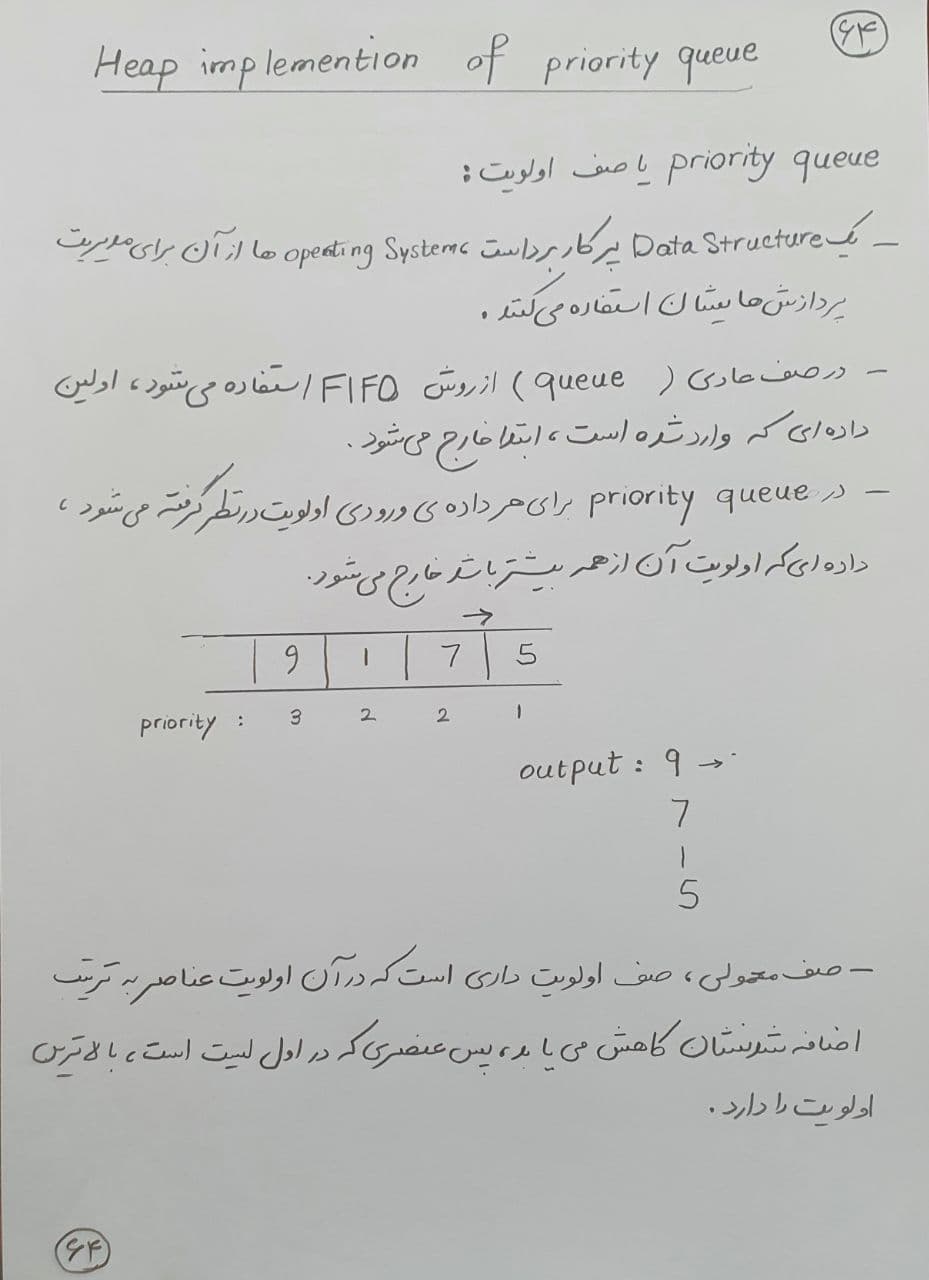 ۶۴
Heap implemention of priority queue
priority queue یا صف اولویت :
– یک Data Structure پر کاربرد است operting Systems ها از آن برای مدیریت
پردازش هایشان استفاده می کنند .
– در صف عادی ( queue ) از روش FIFO استفاده می شود ، اولین
داده ای که وارد شده است ، ابتدا خارج می شود .
– در priority queue برای هر داده ی ورودی اولویت در نظر گرفته می شود ،
داده ای که اولویت آن از همه بیشتر باشد خارج می شود .
→
| 9 | 1 | 7 | 5
priority : 3 2 2 1
output : 9 →
7
1
5
– صف معمولی ، صف اولویت داری است که در آن اولویت عناصر به ترتیب
اضافه شدنشان کاهش می یابد ، پس عنصری که در اول لیست است ، بالاترین
اولویت را دارد .
۶۴